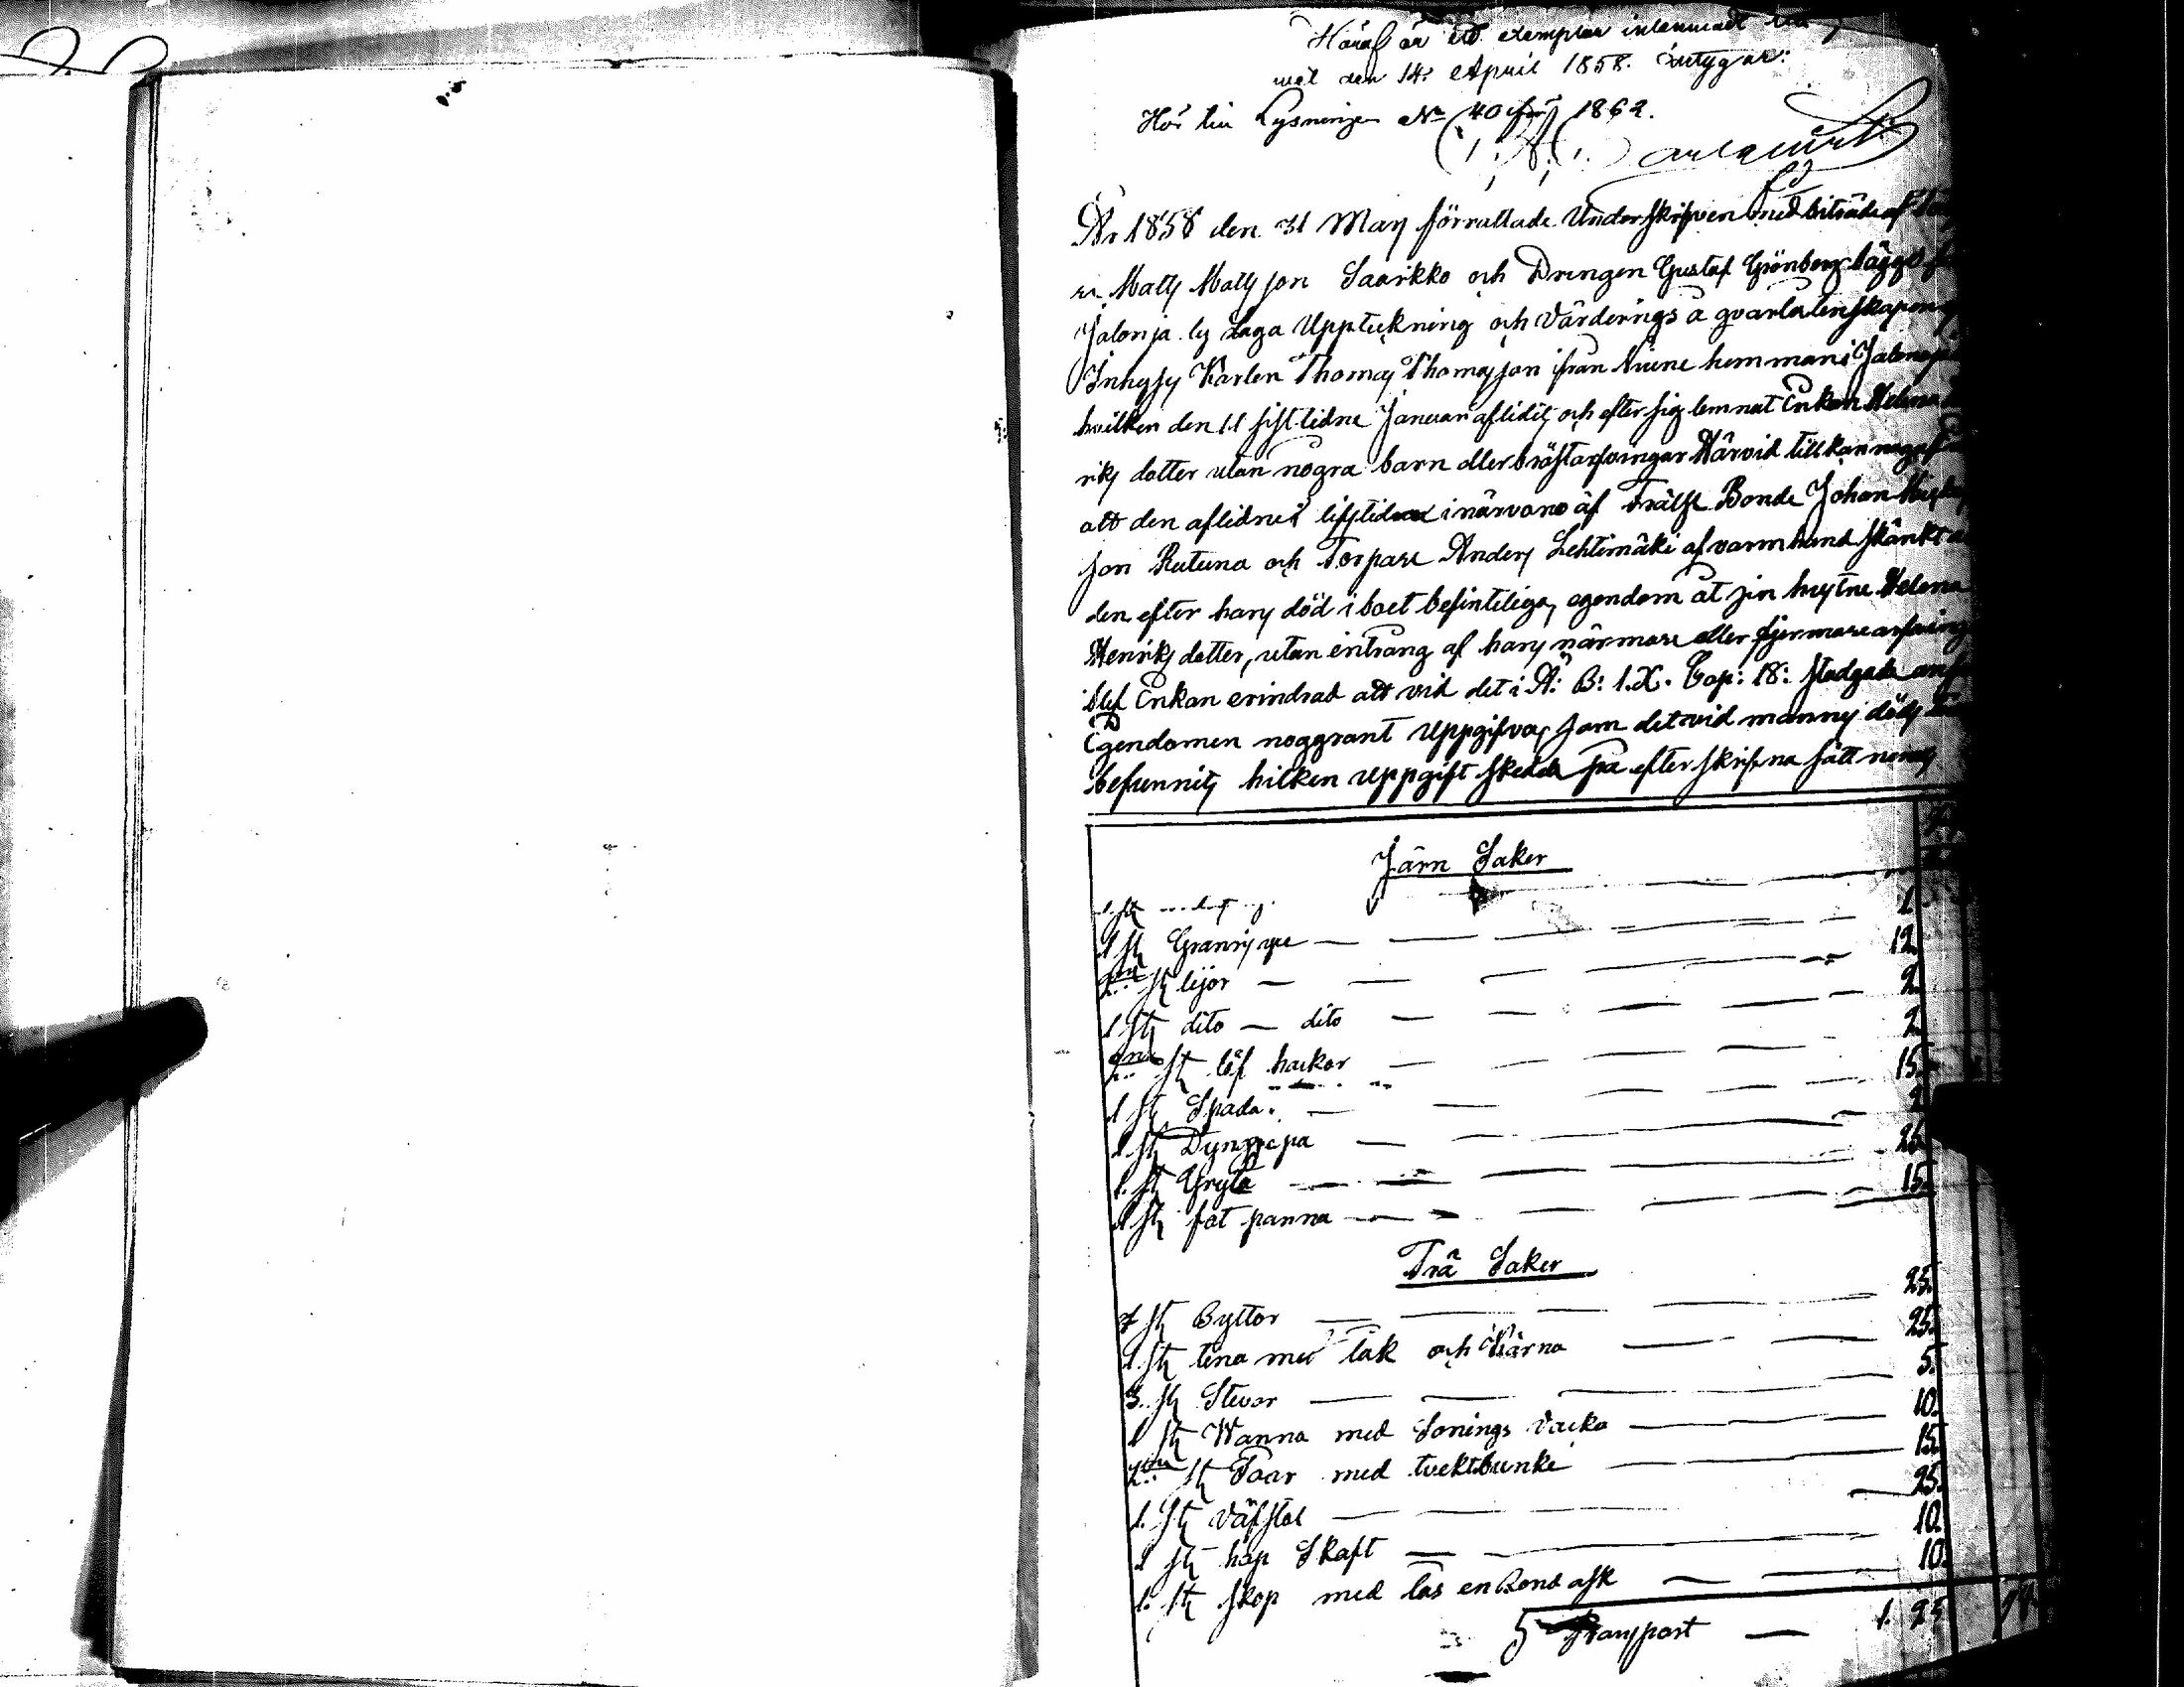 Häraf är ett exemplar inlemnadt
den 14. April 1858. intygar:
Hör till Lysningen No 40 1862.
År 1858 den 31 Maij förrättade Underskrifven med biträde af
Matts Mattsson Saarikko och Drengen Gustaf Grönberg bägge
Jalonja by Laga Uppteckning och Värderings å qvarlåtenskapen
Inhyses Karlen Thomas Thomasson ifrån hemman i
hvilken den 11 sistledne Januari aflidit, och efter sig lemnat Enkan Helena
riks dotter utan några barn eller bröstarfvingar Härvid tillkännagafs
att den aflidne i lifstiden i närvaro af Frälse Bonde Johan
son Rutuna och Torpare Anders Lehtimäki af varm hand skänkt
den efter hans död i boet befinteliga, egendom åt sin hustru Helena
Henriks dotter, utan intrång af hans närmare eller fjermare arfving
blef Enkan erindrad att vid det i Ä: B: 1.X. Cap: 18: stadgade
Egendomen noggrant Uppgifvas som det vid mannens död
befunnits hilken Uppgift skedde på efterskrifna sätt
Järn Saker
1 st 1
1 st Granris yxe — 12
2 st lijor — 2
1 st dito — dito — 2
2 st löf hackor — 15
1 st Spada. — 2
1 st Dyngrepa — 26
1. st Gryta — 15
1 st fat panna —
Trä Saker
7 st Byttor — 25.
1 st tina med låk och Kärna — 25.
3. st Stevor — 5.
1 st Wanna med Sånings Vacka — 10.
2 st Saar med tvektbunke — 15
1. st Väfstol — 25.
1 st hop Skaft — 10.
1. st skåp med lås en Rond ask — 10.
Transport — 1. 25